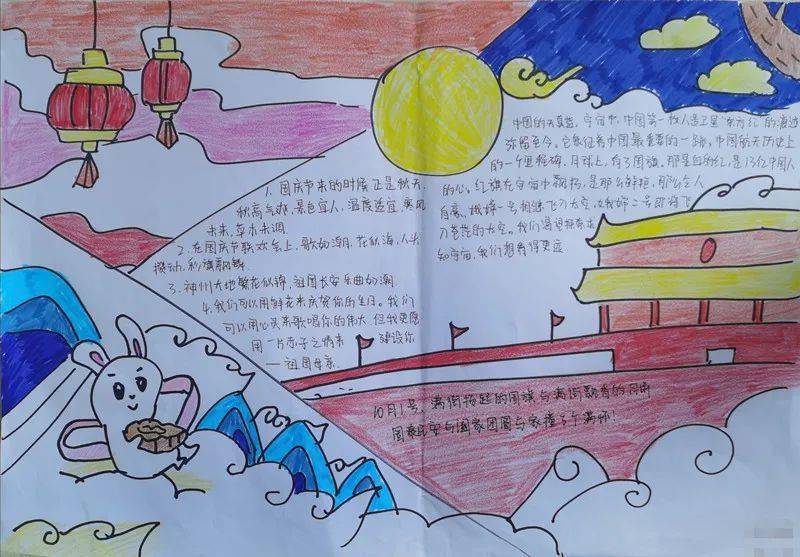 1、国庆节来的时候正是秋天,
秋高气爽,景色宜人,温度适宜,寒风
未来,草木未凋
2、在国庆节歌欢台上,歌如潮,花似海,人头
攒动,彩旗飘舞
3、神州大地繁花似锦,祖国长安乐曲如潮
4、我们可以用鲜花来庆贺你的生日。我们
可以用心灵来歌唱你的伟大,但我更愿
用一片赤子之情来 建设你
——祖国母亲.
中国的天真蓝,宇宙中,中国第一枚人造卫星"东方红"的遗迹
弥留至今,它象征着中国最重要的一跳,中国航天历史上
的一个里程碑,月球上,有了国旗,那星白的红,是13亿中国人
的心,红旗在宇宙中飘扬,是那么鲜艳,那么令人
自豪、嫦娥一号相继飞入太空,嫦娥二号即将飞
入苍茫的太空。我们渴望探索求
知宇宙,我们想看得更远
10月1号、满街摇挺的国旗与满街飘香的月肉
国泰民安与阖家团圆与家撞了个满怀!